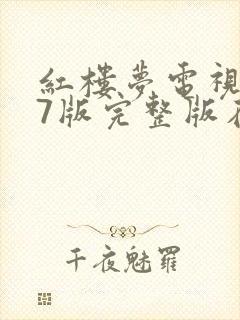 紅樓夢電視
7版完整版
千夜魅羅